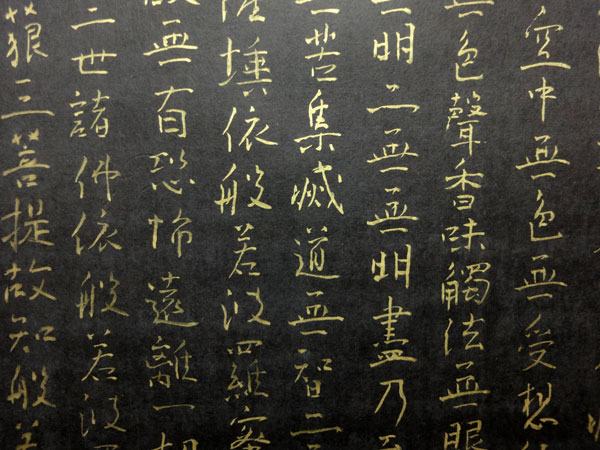 空中無色無受想
無色聲香味觸法無眼
無明亦無無明盡乃至
無苦集滅道無智亦
薩埵依般若波羅蜜
故無有恐怖遠離一切
三世諸佛依般若波羅
藐三菩提故知般若